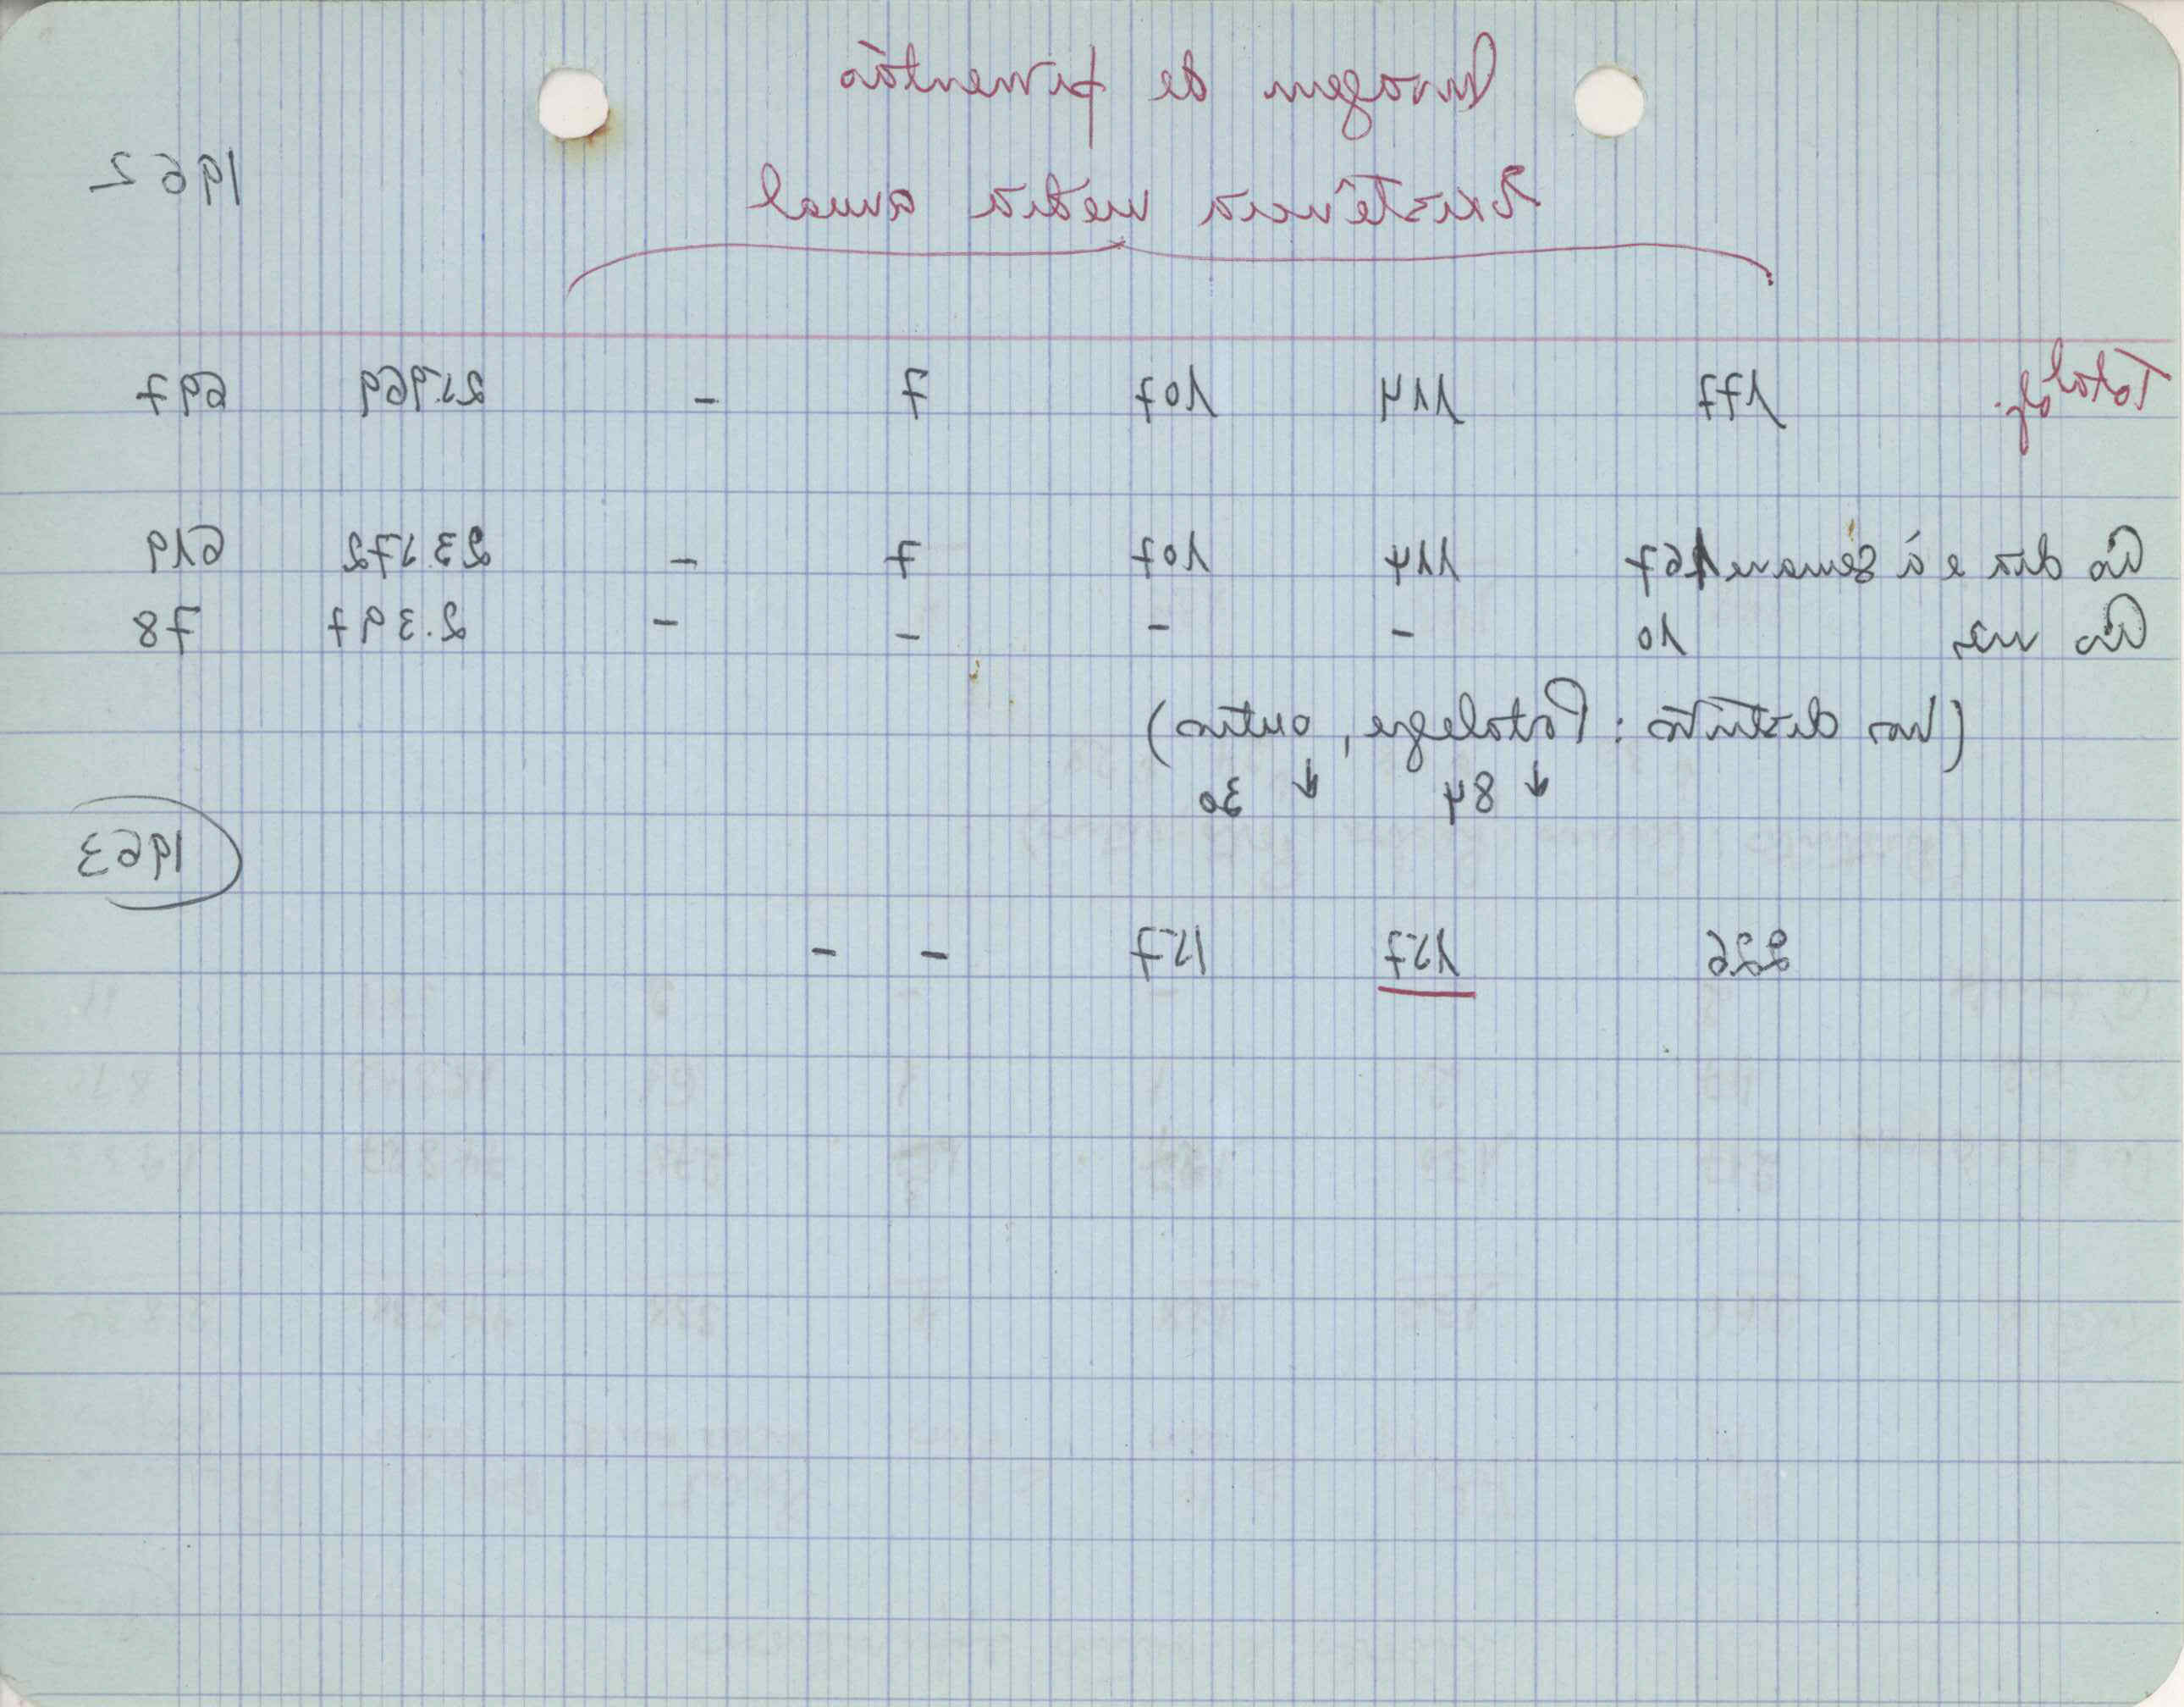 Moagem de pimentão
Existência média anual 1962
Totais. 177 114 107 7 - 25.969 697
Ao dia e à semana 167 114 107 7 - 23.572 619
Ao mês 10 - - - - 2.397 78
(Nos distritos : Portalegre, outros)
↓ 84 ↓ 30
1963
226 157 157 - -